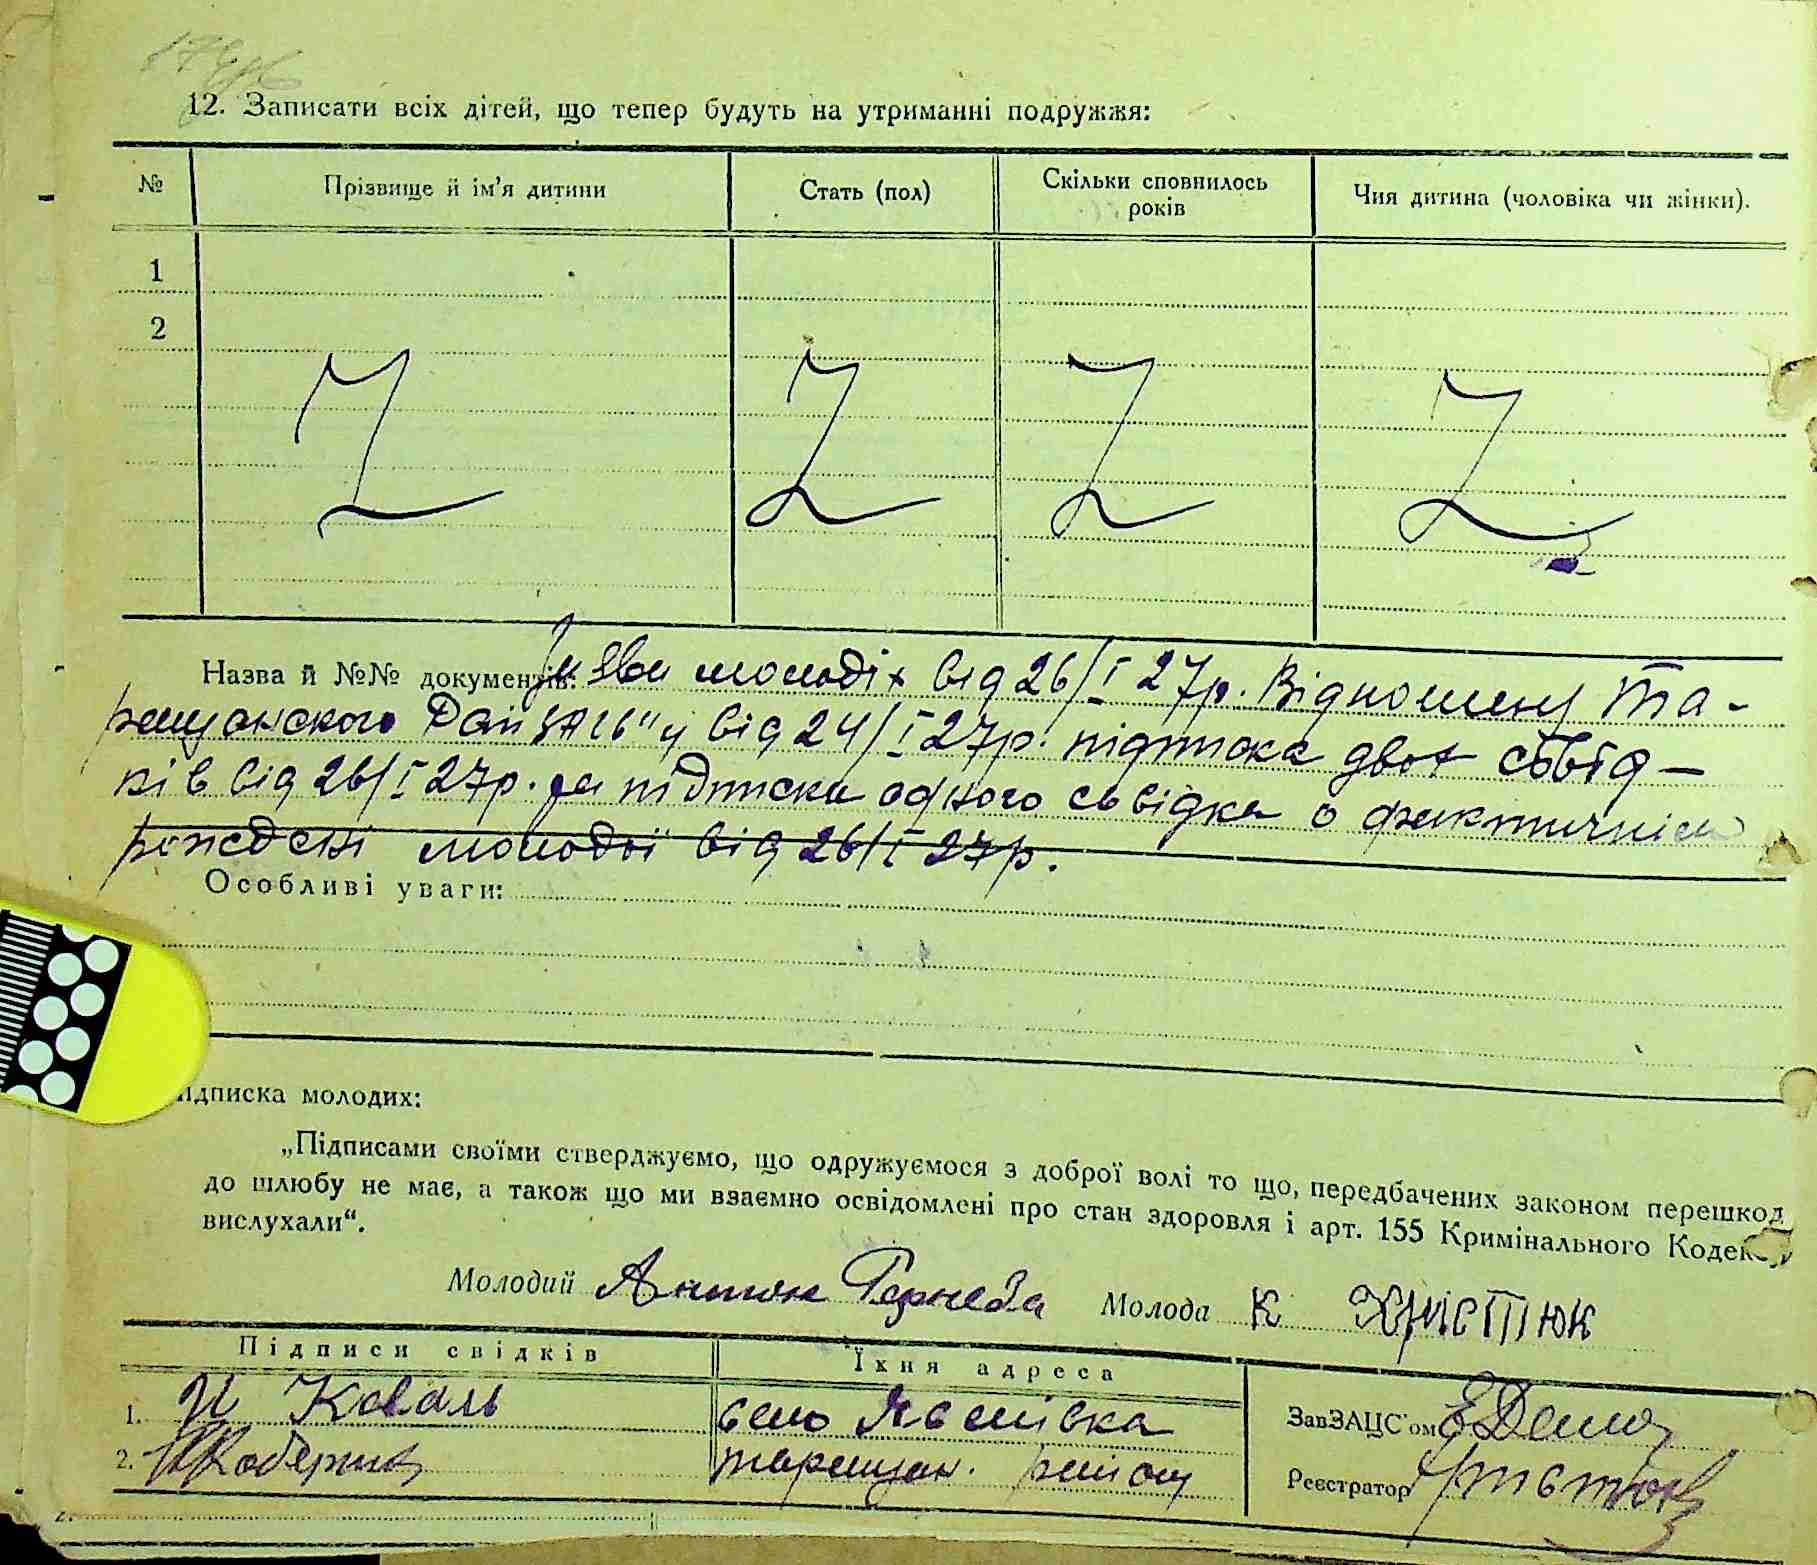 12. Записати всіх дітей, що тепер будуть на утриманні подружжя:
№ Прізвище й ім'я дитини Стать (пол) Скільки сповнилось років Чия дитина (чоловіка чи жінки).
1
2
Z Z Z Z
Назва й №№ документів: заяви молодіх від 26/I 27р. Відношену Та-
ращанского від 24/I 27р. підписка двох свід-
ків від 26/I 27р. та підписка одного свідка о фактичнім
рожденї молодої від 26/I 27р.
Особливі уваги:
ідписка молодих:
„Підписами своїми стверджуємо, що одружуємося з доброї волі то що, передбачених законом перешкод
до шлюбу не має, а також що ми взаємно освідомлені про стан здоровля і арт. 155 Кримінального Кодексу
вислухали“.
Молодий Антон Молода К Христюк
Підписи свідків Їхня адреса
1. И Коваль село Яснівка ЗавЗАЦС'ом
2. таращан. району Реєстратор Христюк
2.